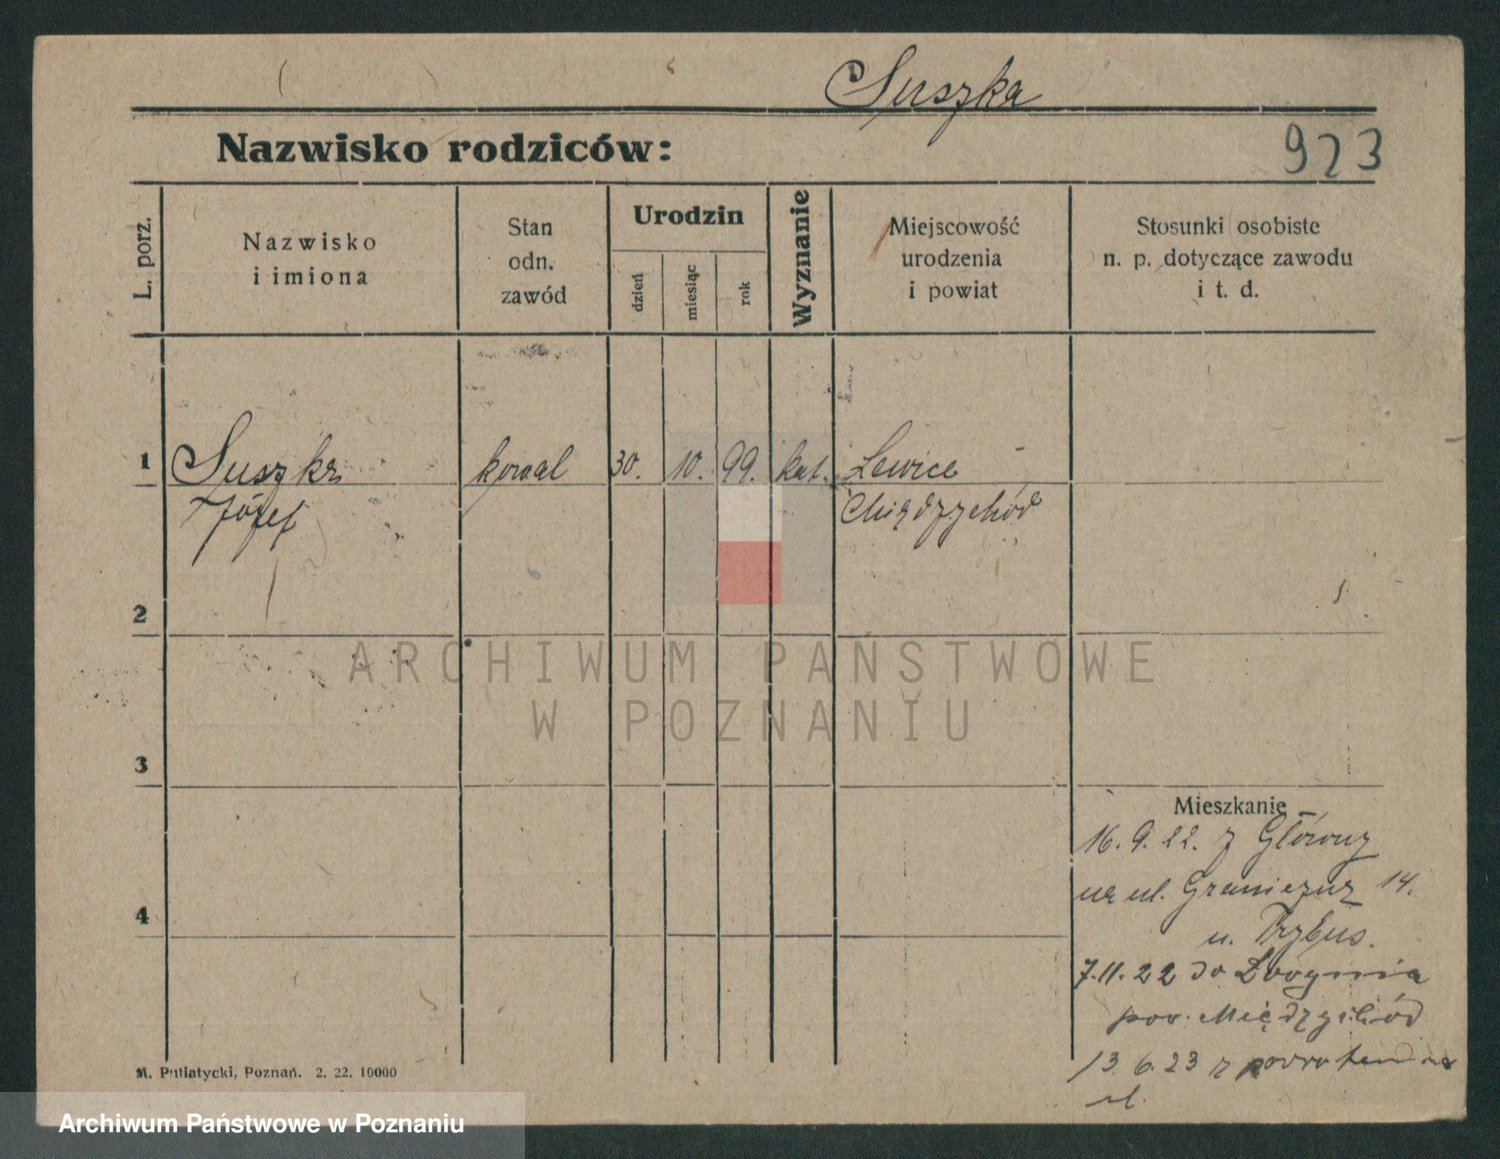 Suszka
Nazwisko rodziców:
923
L. porz.
Nazwisko
i imiona
Stan
odn.
zawód
Urodzin
dzień
miesiąc
rok
Wyznanie
Miejscowość
urodzenia
i powiat
Stosunki osobiste
n. p. dotyczące zawodu
i t. d.
1
Suszka kowal 30. 10. 99. kat. Lewice
Józef Międzychód
2
ARCHIWUM PAŃSTWOWE
W POZNANIU
3
Mieszkanie
16. 9. 22. z Główny
na ul. Graniczną 14.
4
u. Trybus.
7.11.22 do
pow. Międzychód
13. 6. 23 z powrotem na
ul.
M. Putiatycki, Poznań. 2. 22. 10000
Archiwum Państwowe w Poznaniu